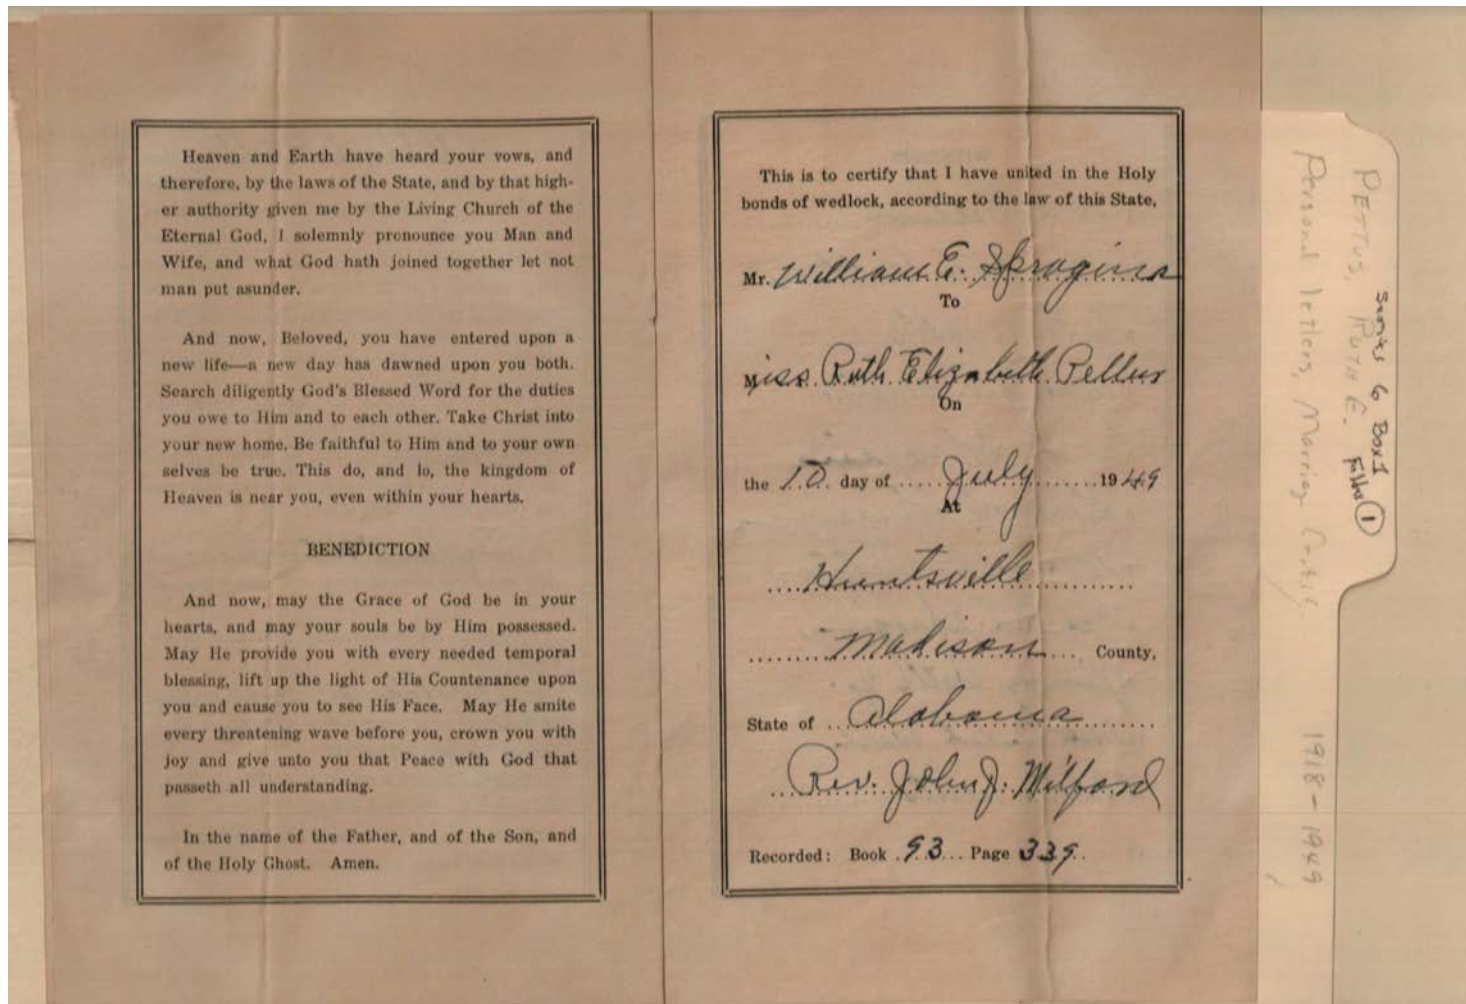 Heaven and Earth have heard your vows, and
therefore, by the laws of the State, and by that high-
er authority given me by the Living Church of the
Eternal God, I solemnly pronounce you Man and
Wife, and what God hath joined together let not
man put asunder.
And now, Beloved, you have entered upon a
new life—a new day has dawned upon you both.
Search diligently God's Blessed Word for the duties
you owe to Him and to each other. Take Christ into
your new home. Be faithful to Him and to your own
selves be true. This do, and lo, the kingdom of
Heaven is near you, even within your hearts.
BENEDICTION
And now, may the Grace of God be in your
hearts, and may your souls be by Him possessed.
May He provide you with every needed temporal
blessing, lift up the light of His Countenance upon
you and cause you to see His Face. May He smite
every threatening wave before you, crown you with
joy and give unto you that Peace with God that
passeth all understanding.
In the name of the Father, and of the Son, and
of the Holy Ghost. Amen.
This is to certify that I have united in the Holy
bonds of wedlock, according to the law of this State,
Mr. William E. Spragins
To
Miss Ruth Elizabeth Pettus
On
the 10 day of July 1949
At
Huntsville
Madison County,
State of Alabama
Rev. John J. Milford
Recorded: Book 93 Page 339
Series 6 Box 1 Folder 1
PETTUS, RUTH E.
Personal letters, Marriage Certif. 1918-1949